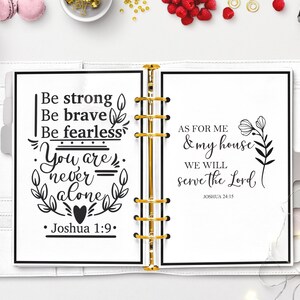 Be strong
Be brave
Be fearless
You are
never
alone
• Joshua 1:9 •
AS FOR ME
& my house
WE WILL
serve the Lord
JOSHUA 24:15